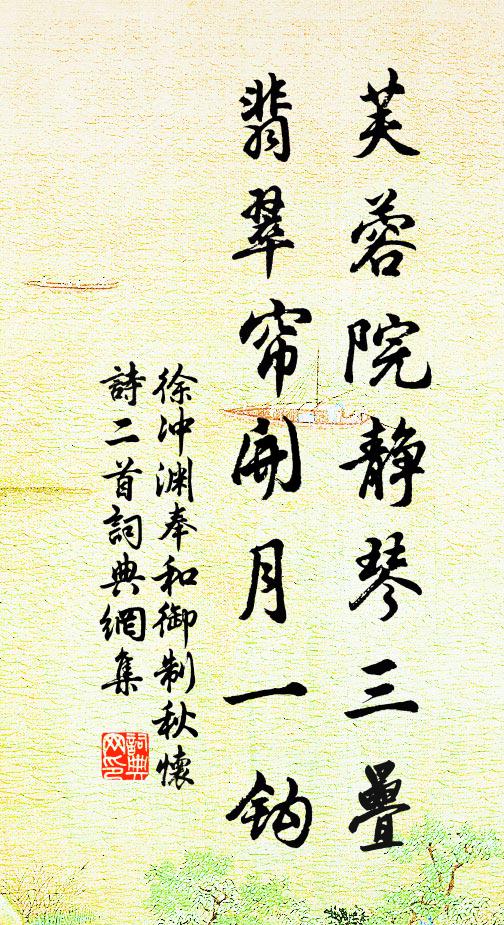 芙蓉院静琴三疊
翡翠帘開月一鈎
徐冲渊奉和御制秋懷
詩二首詞典網集
詞典网印